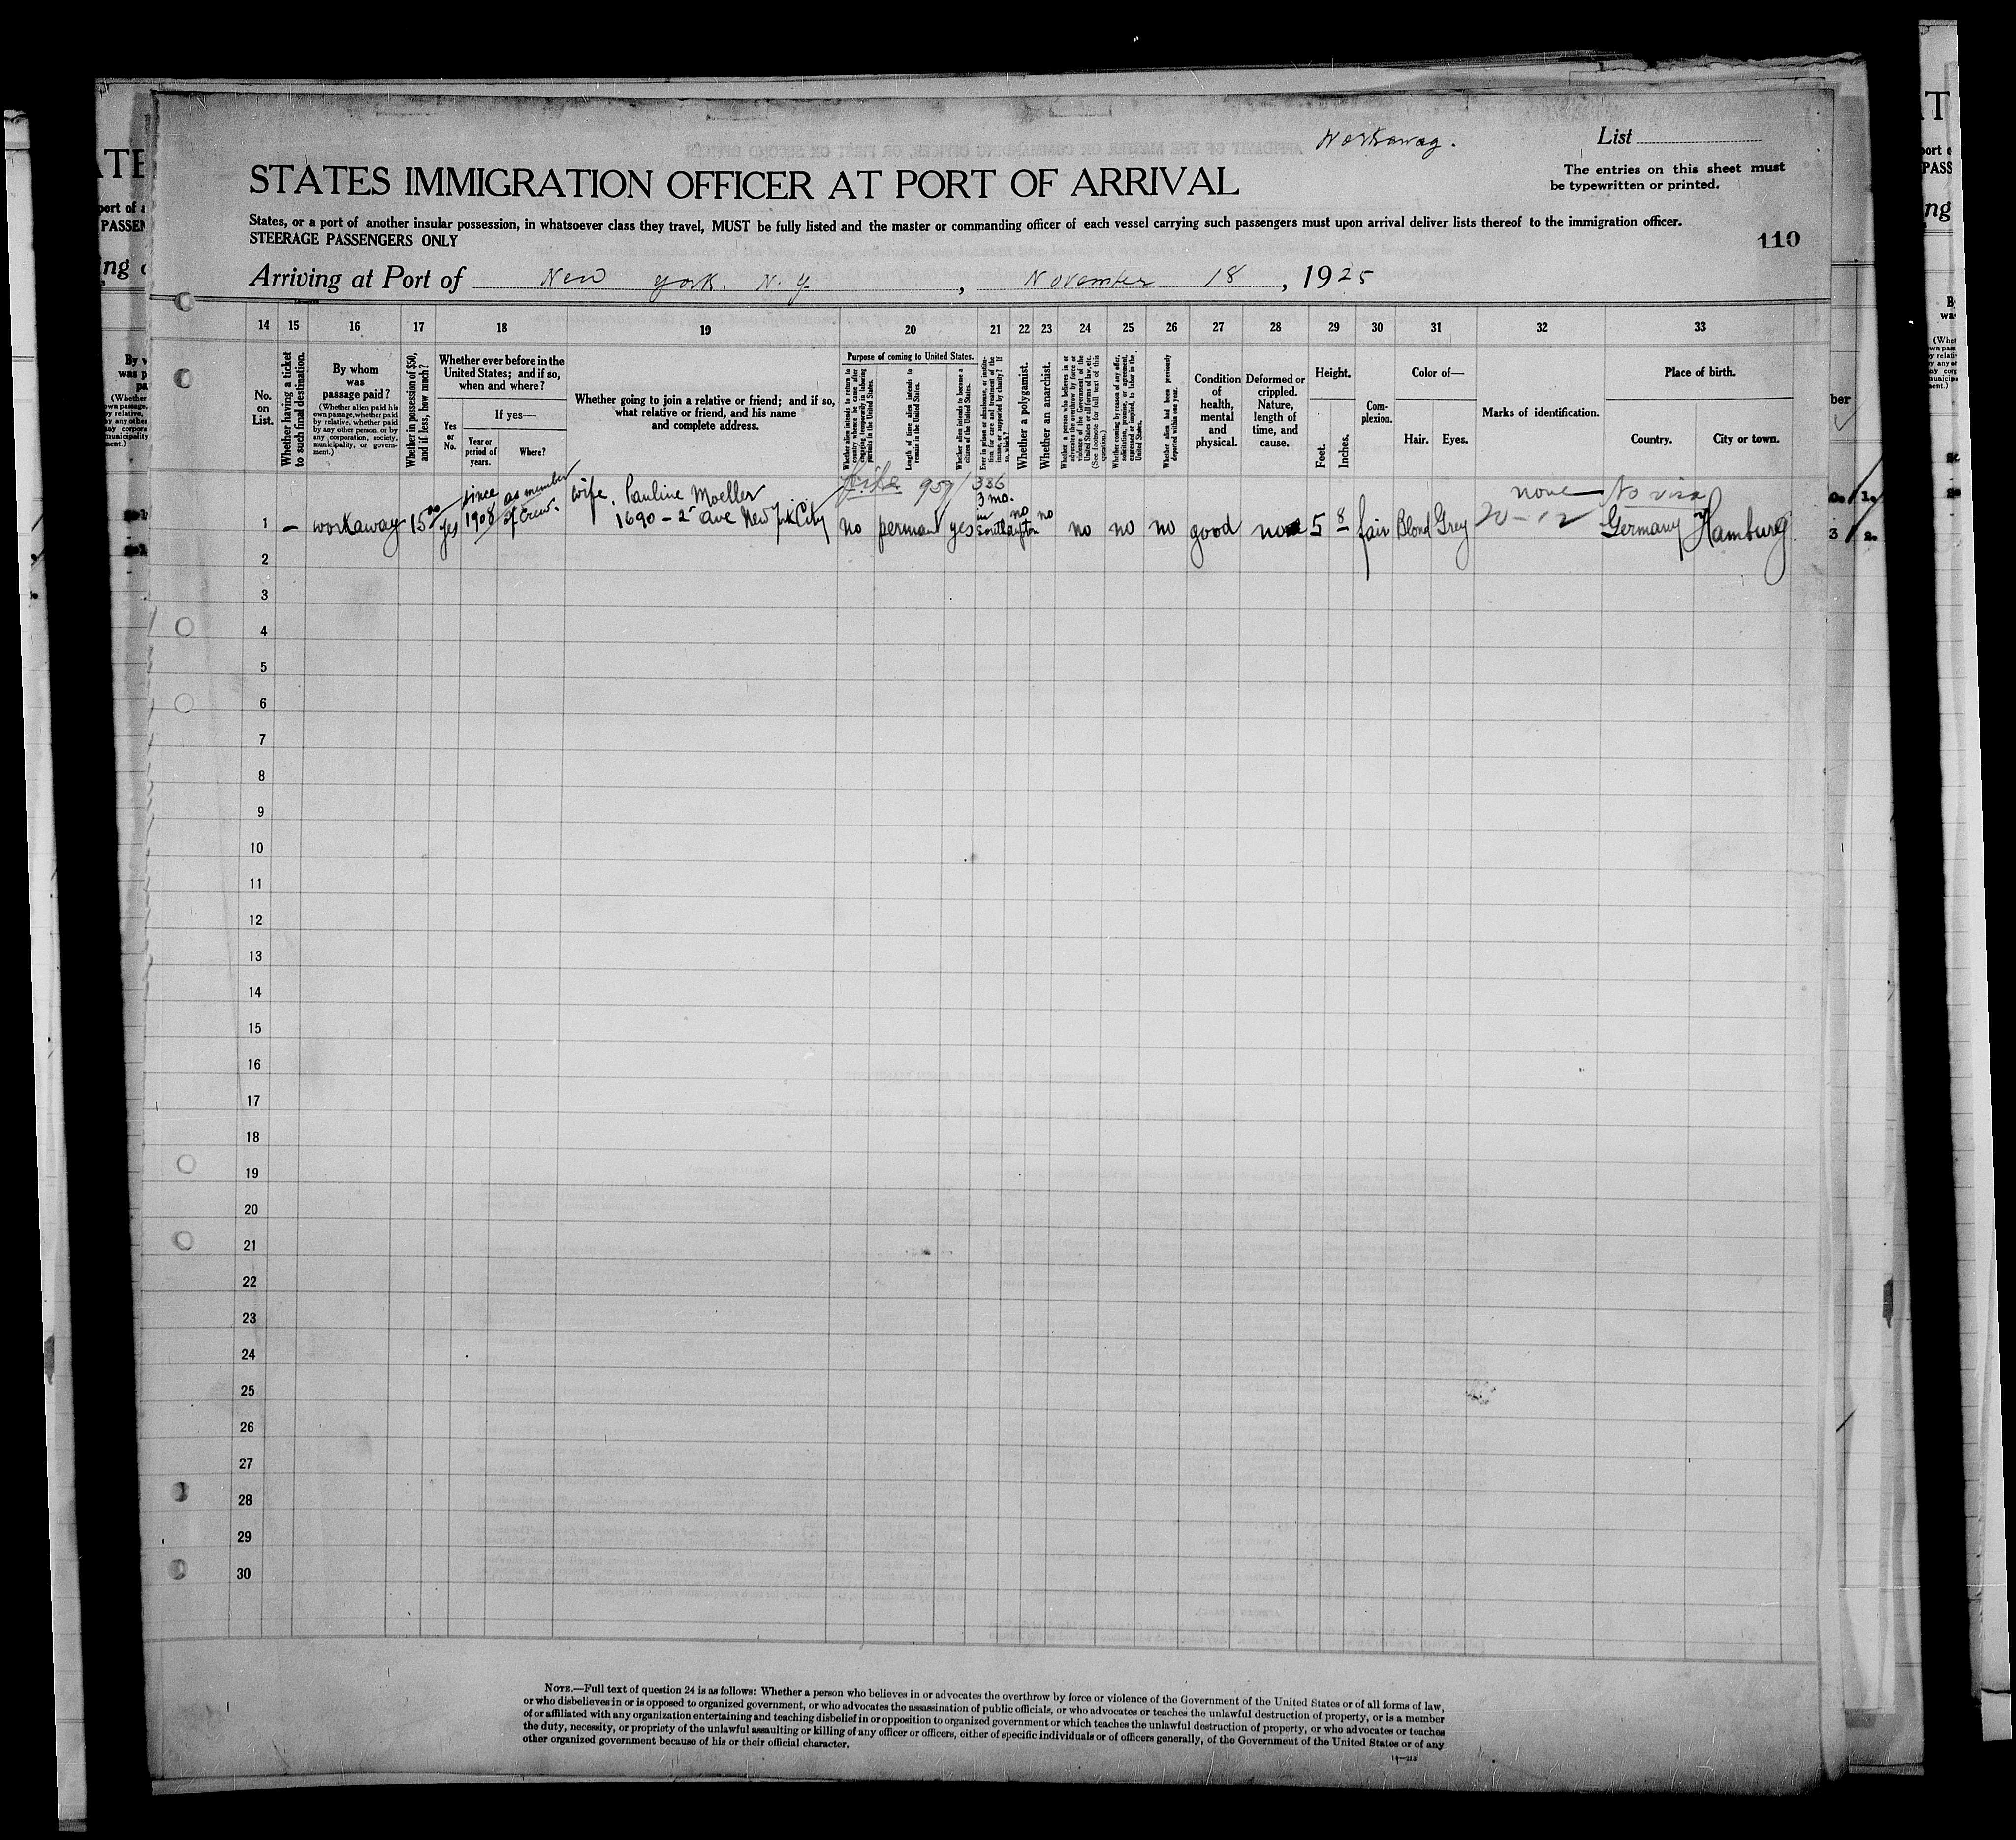 Workaway.
List
STATES IMMIGRATION OFFICER AT PORT OF ARRIVAL
The entries on this sheet must
be typewritten or printed.
States, or a port of another insular possession, in whatsoever class they travel, MUST be fully listed and the master or commanding officer of each vessel carrying such passengers must upon arrival deliver lists thereof to the immigration officer.
STEERAGE PASSENGERS ONLY
110
Arriving at Port of New York. N. Y. , November 18 , 1925
14 15 16 17 18 19 20 21 22 23 24 25 26 27 28 29 30 31 32 33
No. on List.
Whether having a ticket to such final destination.
By whom was passage paid?
(Whether alien paid his own passage, whether paid by relative, whether paid by any other person, or by any corporation, society, municipality, or government.)
Whether in possession of $50, and if less, how much?
Whether ever before in the United States; and if so, when and where?
Yes or No.
If yes—
Year or period of years.
Where?
Whether going to join a relative or friend; and if so, what relative or friend, and his name and complete address.
Purpose of coming to United States.
Whether alien intends to return to country whence he came after engaging temporarily in laboring pursuits in the United States.
Length of time alien intends to remain in the United States.
Whether alien intends to become a citizen of the United States.
Ever in prison or almshouse, or institution for care and treatment of the insane, or supported by charity? If so, which?
Whether a polygamist.
Whether an anarchist.
Whether a person who believes in or advocates the overthrow by force or violence of the Government of the United States or all forms of law, etc. (See footnote for full text of this question.)
Whether coming by reason of any offer, solicitation, promise, or agreement, expressed or implied, to labor in the United States.
Whether alien had been previously deported within one year.
Condition of health, mental and physical.
Deformed or crippled. Nature, length of time, and cause.
Height.
Feet.
Inches.
Complexion.
Color of—
Hair. Eyes.
Marks of identification.
Place of birth.
Country. City or town.
957/386
none No visa
1 – workaway 15 00 yes since 1908 as member of crew. wife, Pauline Moeller
1690 – 2 ave New York City no perman yes 3 mo. in no no no no no good none 5 8 fair Blond Grey Germany Hamburg.
2
3
4
5
6
7
8
9
10
11
12
13
14
15
16
17
18
19
20
21
22
23
24
25
26
27
28
29
30
NOTE.—Full text of question 24 is as follows: Whether a person who believes in or advocates the overthrow by force or violence of the Government of the United States or of all forms of law,
or who disbelieves in or is opposed to organized government, or who advocates the assassination of public officials, or who advocates or teaches the unlawful destruction of property, or is a member
of or affiliated with any organization entertaining and teaching disbelief in or opposition to organized government or which teaches the unlawful destruction of property, or who advocates or teaches
the duty, necessity, or propriety of the unlawful assaulting or killing of any officer or officers, either of specific individuals or of officers generally, of the Government of the United States or of any
other organized government because of his or their official character.